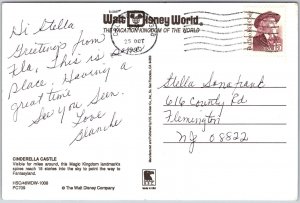 Walt Disney World.
THE VACATION KINGDOM OF THE WORLD
25 OCT
Hi Stella
Greetings from
Fla, This is some
place. Having a
great time
See you Sun.
Love
Blanche
Stella
616 County Rd
Flemington
NJ 08822
CINDERELLA CASTLE
Visible for miles around, this Magic Kingdom landmark's
spires reach 18 stories into the sky to point the way to
Fantasyland.
© The Walt Disney Company